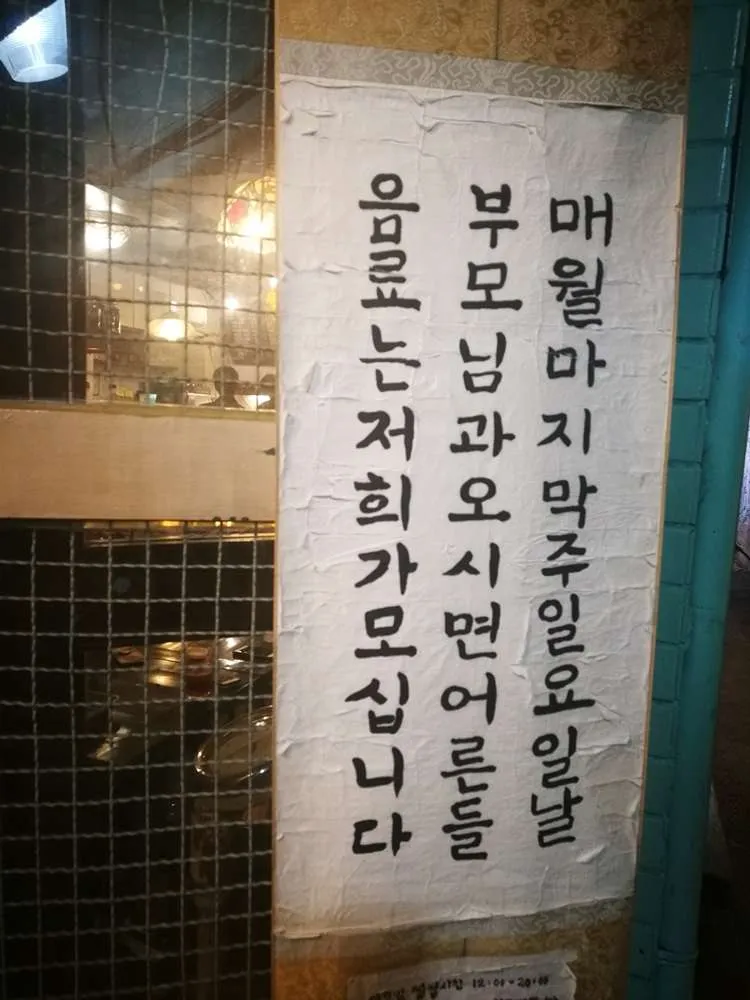 매월마지막주일요일날
부모님과오시면어른들
음료는저희가모십니다
영업시간 12:00-20:00